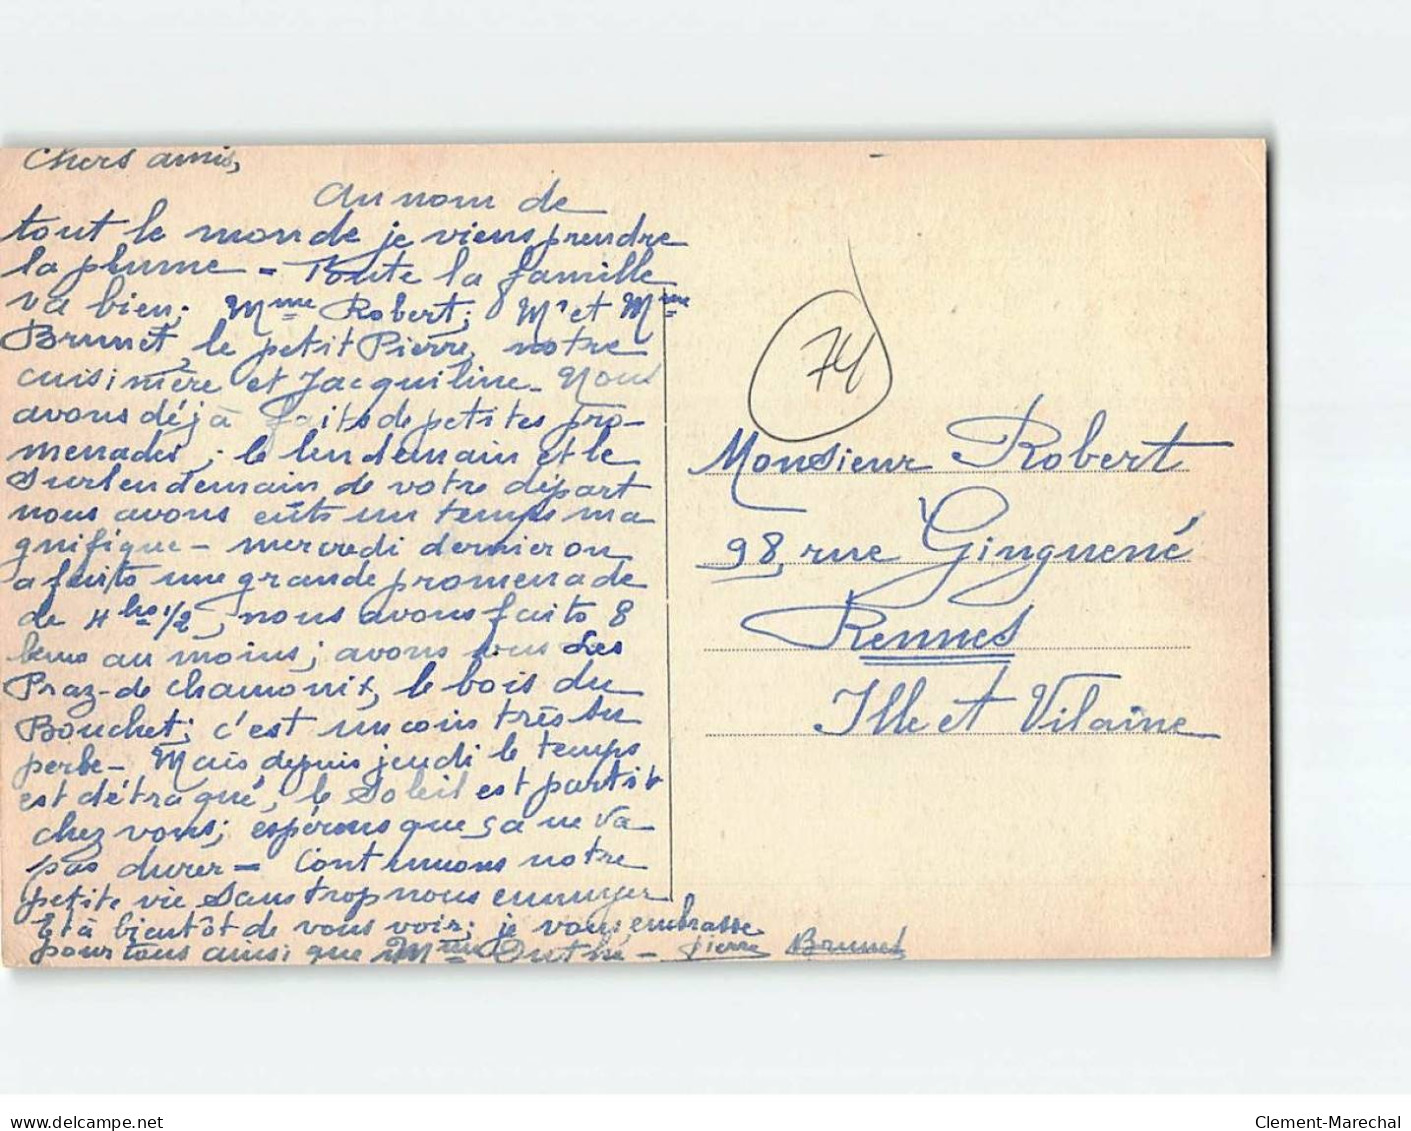 Chers amis,
Au nom de
tout le monde je viens prendre
la plume - Toute la famille
va bien; Mme Robert; Mr et Mme
Brunet, le petit Pierre, notre
cuisinière et Jacquiline - Nous
avons déjà faits de petites pro-
menades; le lendemain et le
surlendemain de votre départ
nous avons eûts un temps ma
gnifique - mercredi dernier on
a faits une grande promenade
de 4 hrs 1/2, nous avons faits 8
au moins; avons vus Les
Praz-de Chamonix, le bois du
Bouchet; c'est un coin très su
perbe - Mais depuis jeudi le temps
est détraqué, le Soleil est partit
chez vous; espérons que ça ne va
pas durer - Continuons notre
petite vie sans trop nous ennuyer
Et à bientôt de vous voir; je vous embrasse
pour tous ainsi que Mme - Pierre Brunet
74
Monsieur Robert
98, rue Ginguené
Rennes
Ille et Vilaine
delcampe.net
Clement-Marechal